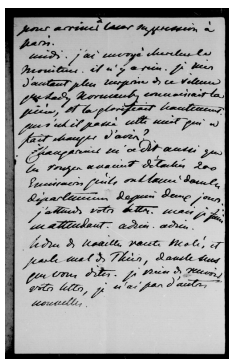 pour arriver à leur impression à
Paris.
midi. j'ai envoyé chercher le
moniteur. il n'y a rien. je suis
d'autant plus surprise de ce silence
que lady Normanby connaissait la
pièce, et la plaisait hautement.
qu'est-il passé cette nuit qui a
fait changer d'avis ?
Changarnier m'a dit aussi que
les rouges avaient détaché 200
Emissaires qu'ils ont lancé dans les
départements depuis deux jours.
j'attends votre lettre. mais je
m'attendant. adieu. adieu.
de Noailles vante Molé, et
parle mal de Thiers, dans le sens
que vous dites. je viens de recevoir
votre lettre, je n'ai pas d'autres
nouvelles.